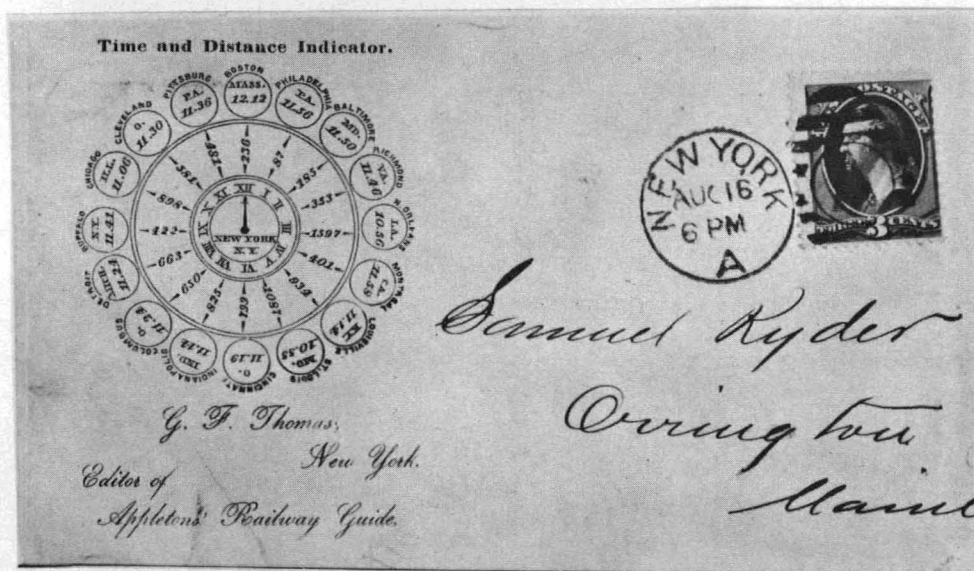 Time and Distance Indicator.
BOSTON
MASS.
12.12
PHILADELPHIA
PA.
11.56
BALTIMORE
MD.
11.50
RICHMOND
VA.
11.46
N. ORLEANS
LA.
10.56
MONTREAL
CA.
11.58
LOUISVILLE
KY.
11.14
ST. LOUIS
MO.
10.55
CINCINNATI
O.
11.19
INDIANAPOLIS
IND.
11.14
COLUMBUS
O.
11.24
DETROIT
MICH.
11.24
BUFFALO
N.Y.
11.41
CHICAGO
ILL.
11.06
CLEVELAND
O.
11.30
PITTSBURG
PA.
11.36
236
87
185
353
1597
401
934
1087
825
650
663
422
898
581
431
XII I II III V VI VII VIII IX X XI
NEW YORK
N.Y.
G. F. Thomas,
New York.
Editor of
Appletons' Railway Guide.
NEW YORK
AUG 16
6 PM
A
POSTAGE
3 CENTS
Samuel Ryder
Orrington
Maine